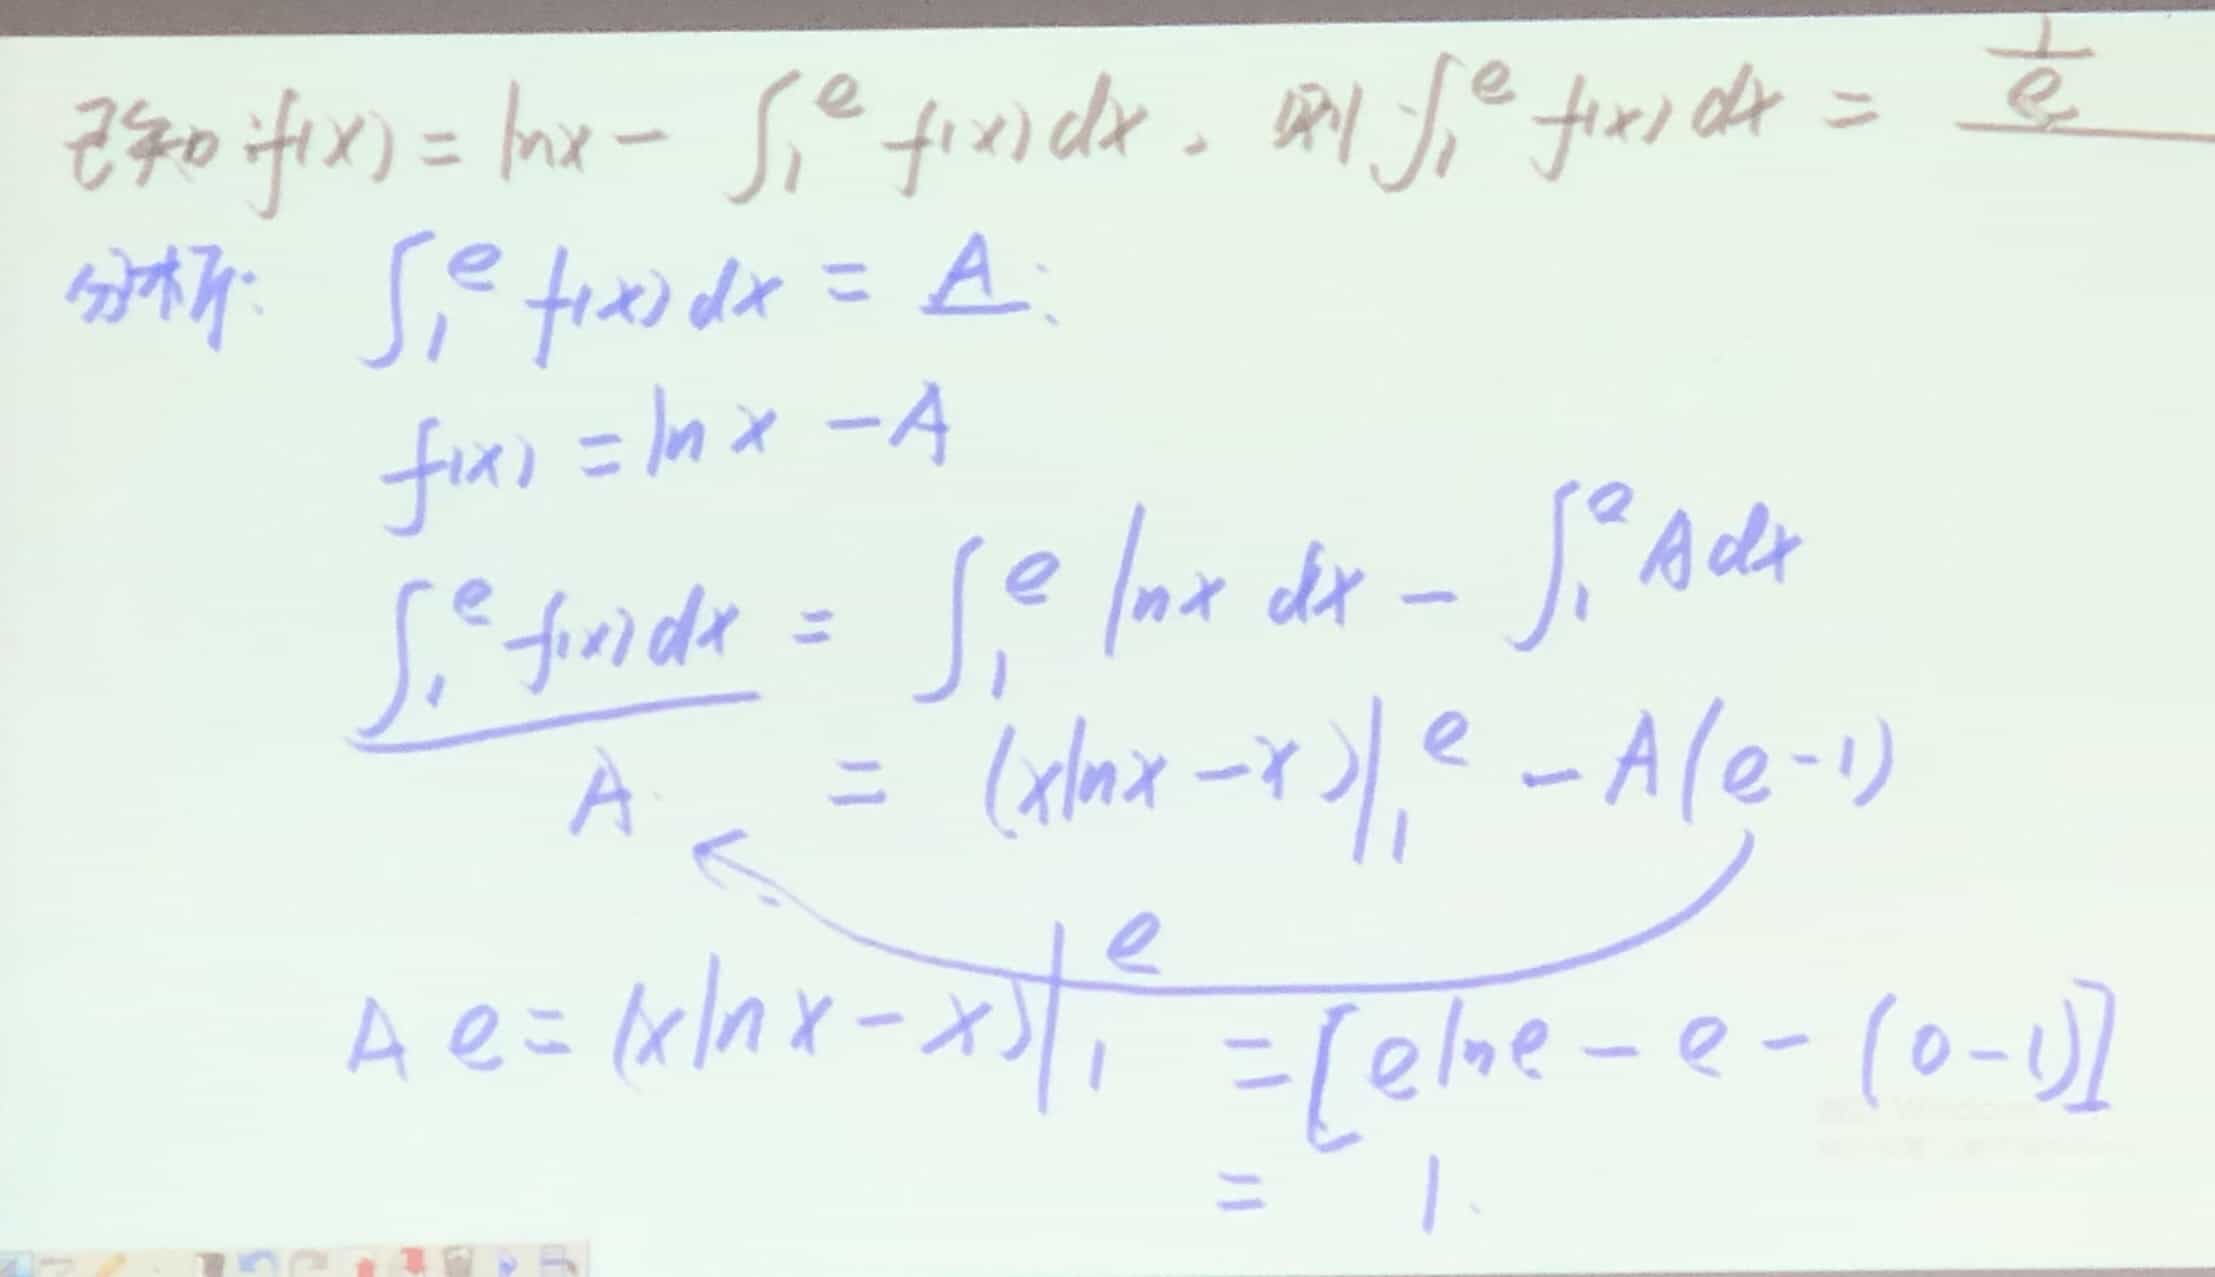 已知 f(x) = lnx - ∫₁ᵉ f(x) dx, 则 ∫₁ᵉ f(x) dx = 1/e
分析: ∫₁ᵉ f(x) dx = A.
f(x) = ln x - A
∫₁ᵉ f(x) dx = ∫₁ᵉ lnx dx - ∫₁ᵉ A dx
A = (xlnx - x)|₁ᵉ - A(e-1)
A e = (xlnx - x)|₁ᵉ = [elne - e - (0-1)]
= 1.